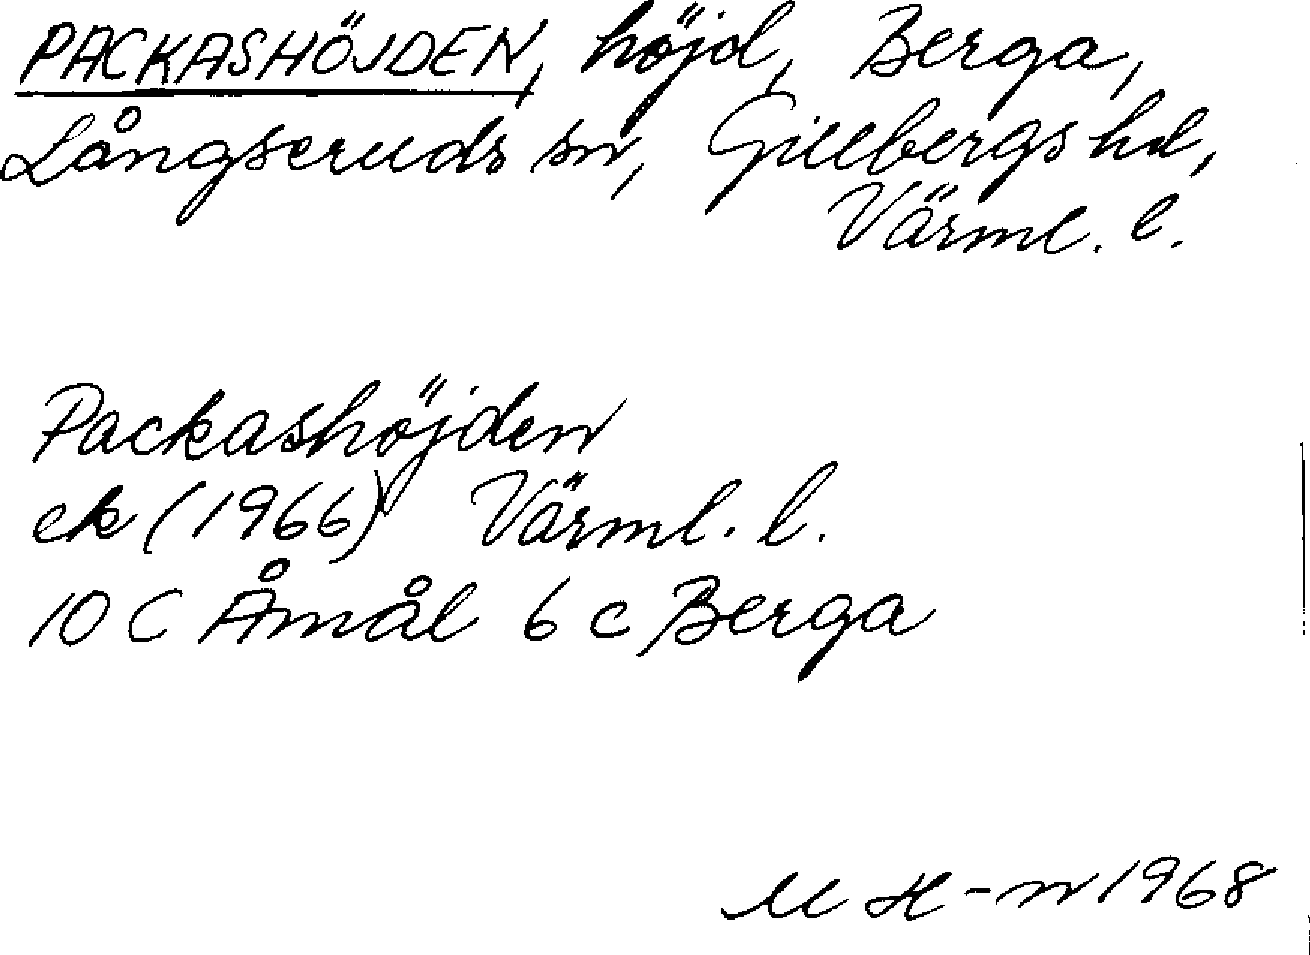 PACKASHÖJDEN, höjd, Berga,
Långseruds sn, Gillbergs hd,
Värml. l.
Packashöjden
ek (1966) Värml. l.
10 C Åmål 6 c Berga
M H-n 1968